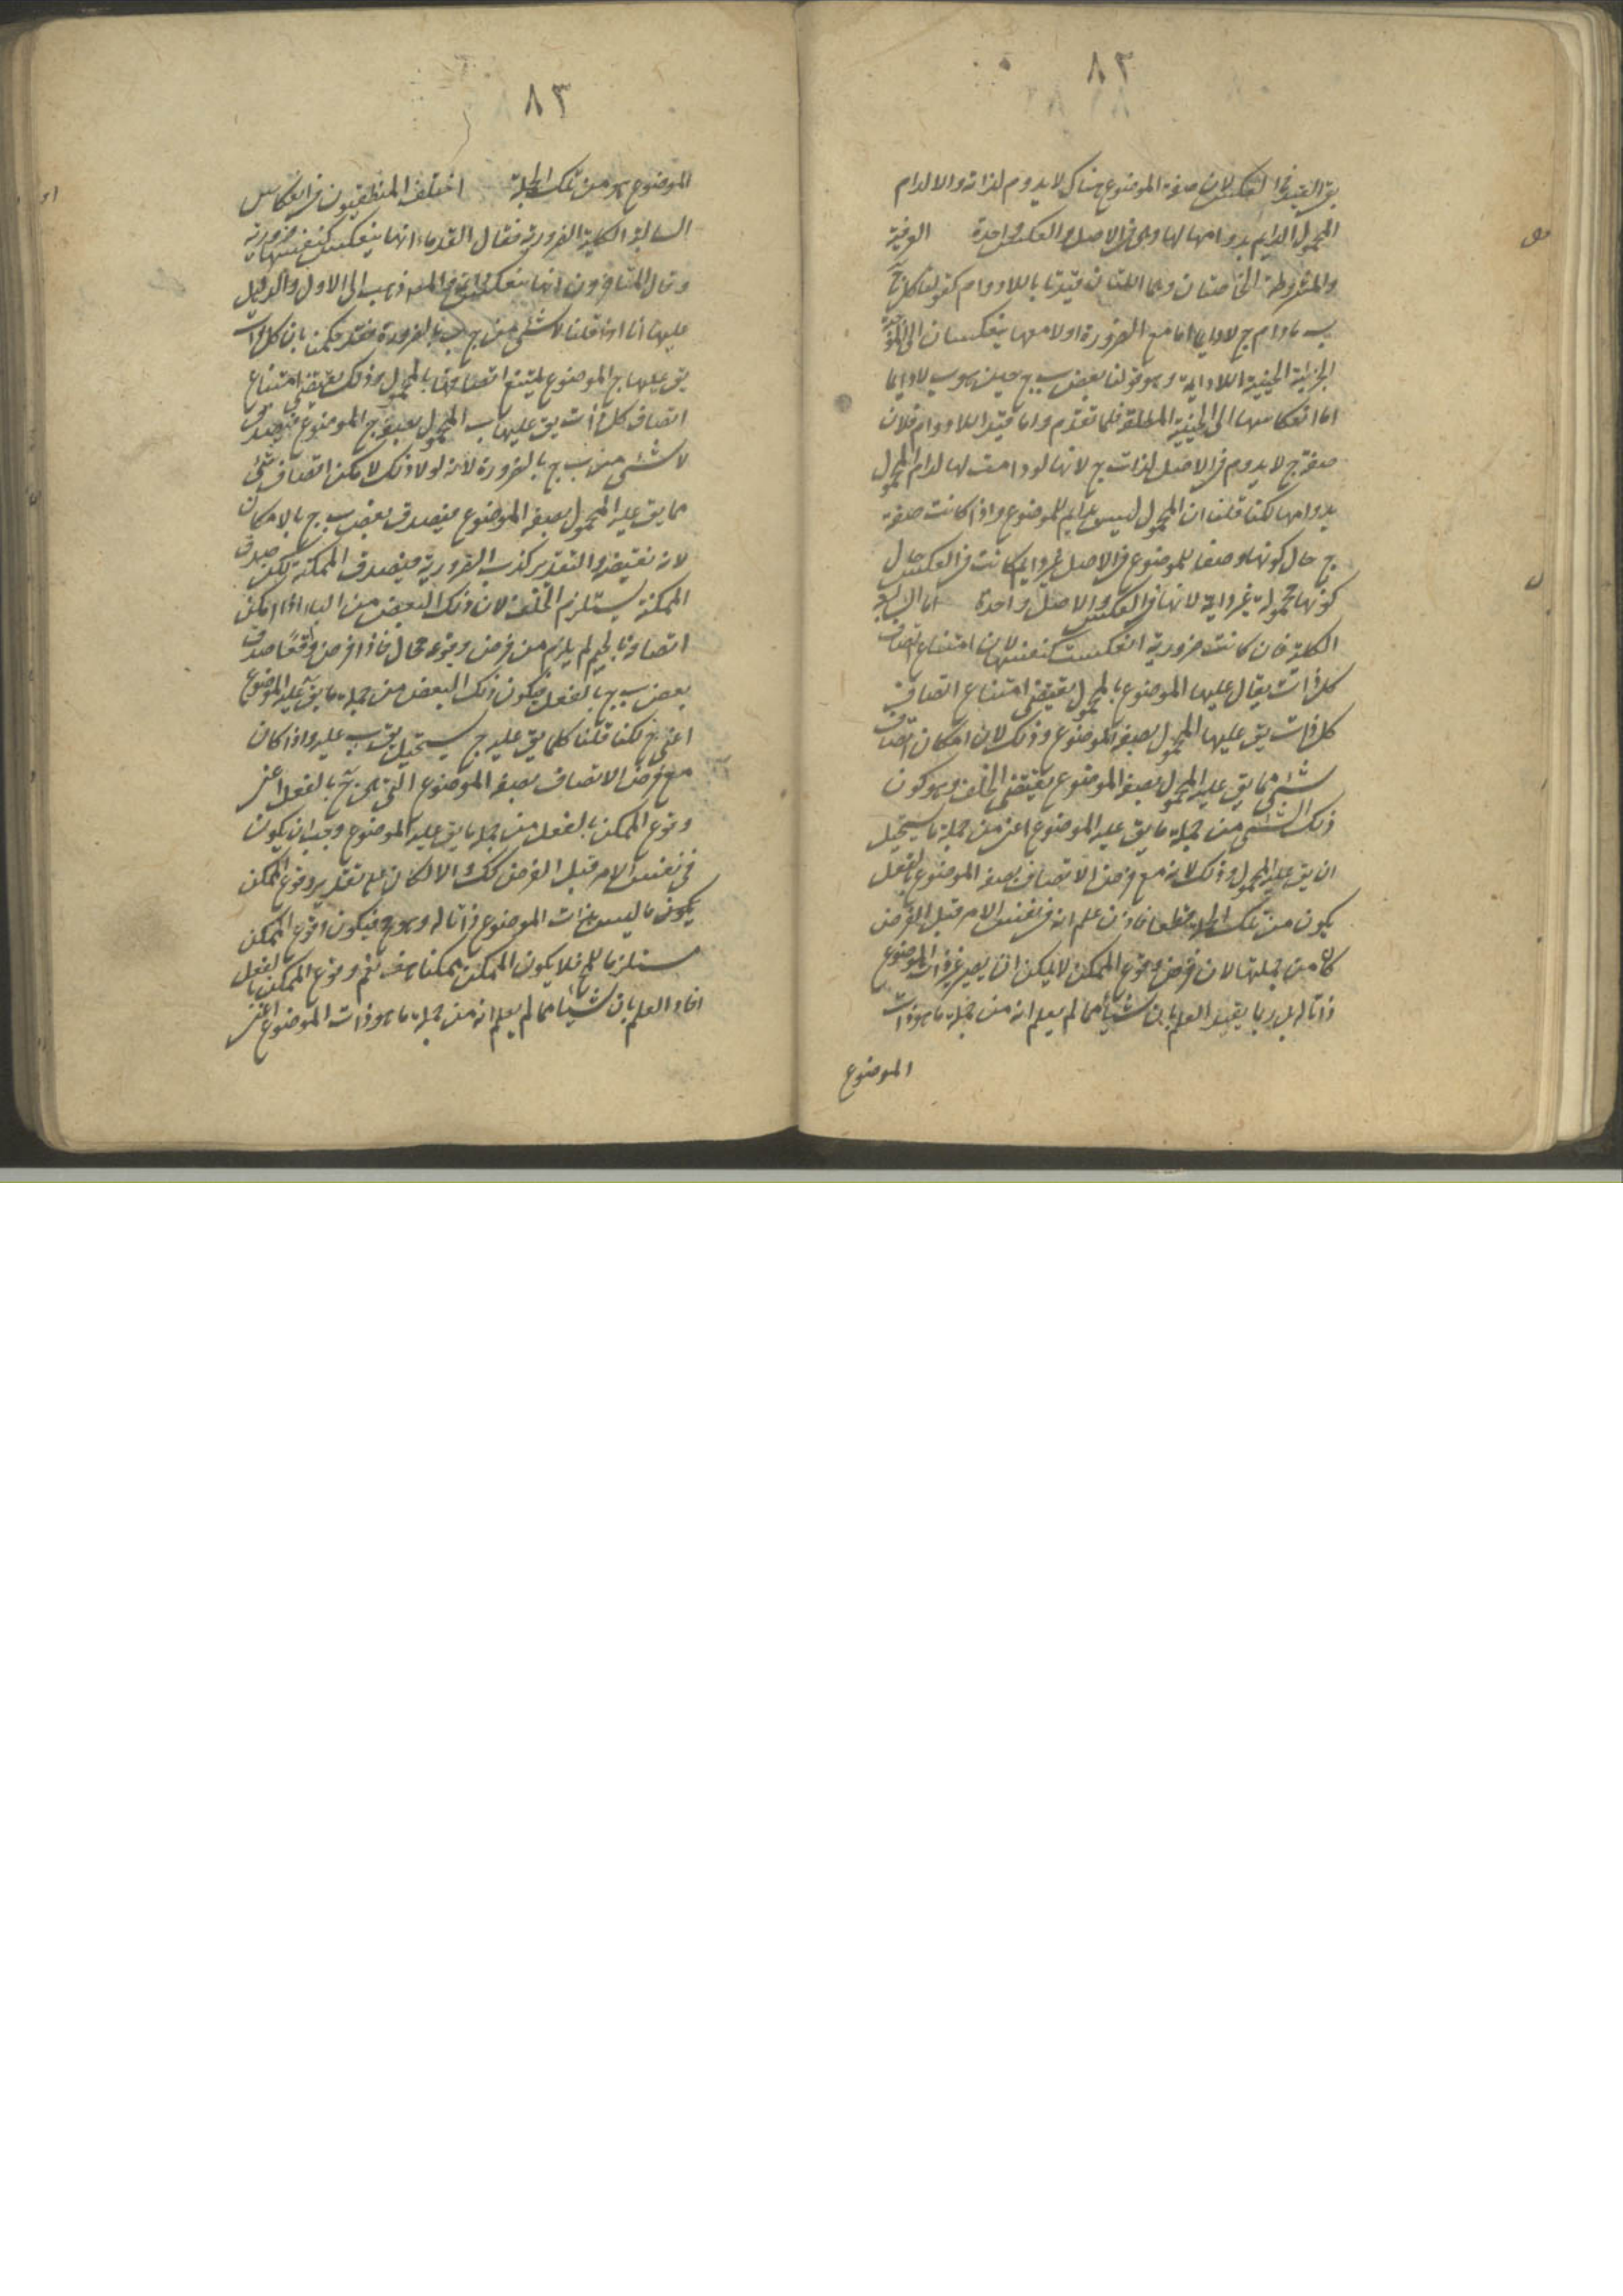 ٨٢
بقي القيد في العكس لان صفة الموضوع هناك لا يدوم لذاته والا لدام
المحمول الدايم بدوامها لها وهى في الاصل والعكس واحدة العرفية
والمشروطة الخاصتان وهما اللتان قيدتا باللادوام كقولنا كل ج
ب مادام ج لا دايما اما مع الضرورة او لا معها ينعكسان الى الموجبة
الجزئية الحينية اللادايمة وهو قولنا بعض ب ج حين هو ب لا دايما
اما انعكاسها الى الحينية المطلقة فلما تقدم واما قيد اللادوام فلان
صفة ج لا يدوم في الاصل لذات ج لانها لو دامت لها لدام المحمول
بدوامها لكنا قلنا ان المحمول ليس بدايم للموضوع واذا كانت صفة
ج حال كونها وصفا للموضوع في الاصل غير دايم كانت في العكس حال
كونها محمولة غير دايمة لانها في العكس والاصل واحدة اما السالبة
الكلية فان كانت ضرورية انعكست كنفسها لان امتناع اتصاف
كل ذات يقال عليها الموضوع بالمحمول يقتضى امتناع اتصاف
كل ذات يق عليها المحمول بصفة الموضوع وذلك لان امكان اتصاف
شئ مما يق عليه المحمول بصفة الموضوع يقتضى الخلف وهو كون
ذلك الشئ من جملة ما يق عليه الموضوع اعنى من جملة ما يستحيل
ان يق عليه المحمول وذلك لانه مع فرض الاتصاف بصفة الموضوع بالفعل
يكون من تلك الجملة قطعا فاذن علم انه في نفس الامر قبل الفرض
كان من جملتها لان فرض وقوع الممكن لا يمكن ان يصير غير ذات الموضوع
ذاتا له بل ربما يفيد العلم بان شيئا مما لم يعلم انه من جملة ما هو ذات
الموضوع
٨٣
الموضوع هو من تلك الجملة اختلف المنطقيون في انعكاس
السالبة الكلية الضرورية فقال القدماء انها ينعكس كنفسها ضرورية
وقال المتأخرون انها ينعكس دايمة والمص ذهب الى الاول والدليل
عليها انا اذا قلنا لا شئ من ج ب بالضرورة فقد حكمنا بان كل ذات
يق عليها ج الموضوع يمتنع اتصافها بالمحمول وذلك يقتضى امتناع
اتصاف كل ذات يق عليها ب المحمول بصفة ج الموضوع فيصدق
لا شئ من ب ج بالضرورة لانه لولا ذلك لامكن اتصاف شئ
مما يق عليه المحمول بصفة الموضوع فيصدق بعض ب ج بالامكان
لانه نقيضه والتقدير كذب الضرورية فيصدق الممكنة لكن صدق
الممكنة يستلزم الخلف لان ذلك البعض من الباء اذا امكن
اتصافه بالجيم لم يلزم من فرض وقوعه محال فاذا فرض واقعا صدق
بعض ب ج بالفعل فيكون ذلك البعض من جملة ما يق عليه الموضوع
اعنى ج لكنا قلنا كلما يق عليه ج يستحيل يق ب عليه واذا كان
مع فرض الاتصاف بصفة الموضوع التي هى ج بالفعل اعنى
وقوع الممكن بالفعل من جملة ما يق عليه الموضوع وجب ان يكون
في نفس الامر قبل الفرض كك والا لكان على تقدير وقوع الممكن
يكون ما ليس بذات الموضوع ذاتا له وهو مح فيكون وقوع الممكن
مستلزما للمح فلا يكون الممكن ممكنا هف نعم وقوع الممكن بالفعل
افاد العلم بان شيئا مما لم يعلم انه من جملة ما هو ذات الموضوع اعنى